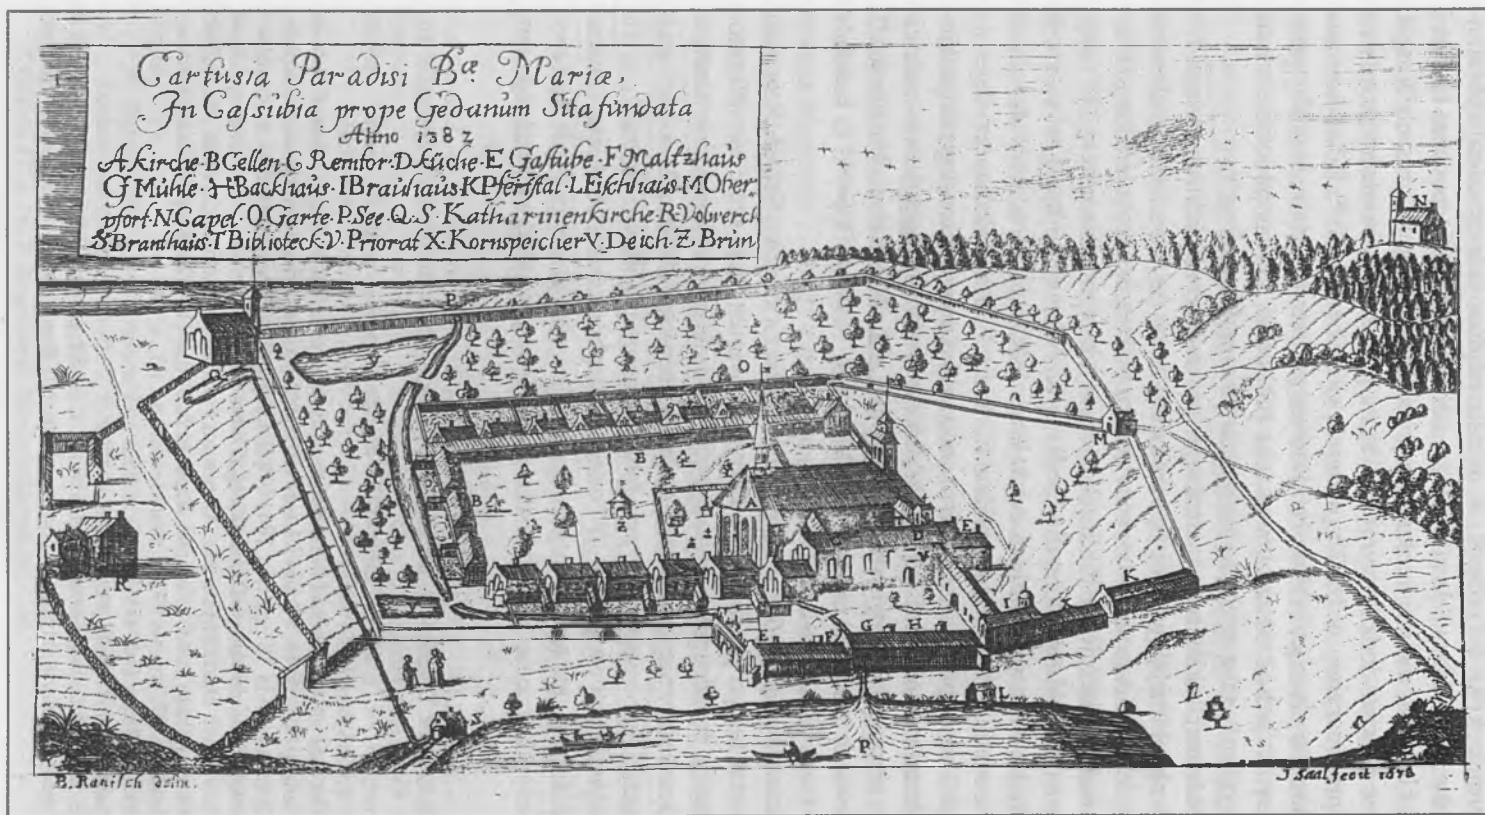 Cartusia Paradisi Bæ Mariæ,
In Cassubia prope Gedanum Sita fundata
Anno 1382
A Kirche · B Cellen · C Remfor · D Küche · E Gastube · F Maltzhaus
G Mühle · H Backhaus · I Brauhaus · K Pferstal · L Fischhaus · M Ober-
pfort · N Capel · O Garte · P See · Q S · Katharinenkirche · R Volwerck
S Branthaus · T Biblioteck · V · Priorat X · Kornspeicher Y · Deich · Z Brün
N
P
O
Y
Q
M
B
B
Z
C
D
E
V
R
K
I
G
H
E
F
L
S
P
B. Ranisch delin.
J Saal fecit 1678